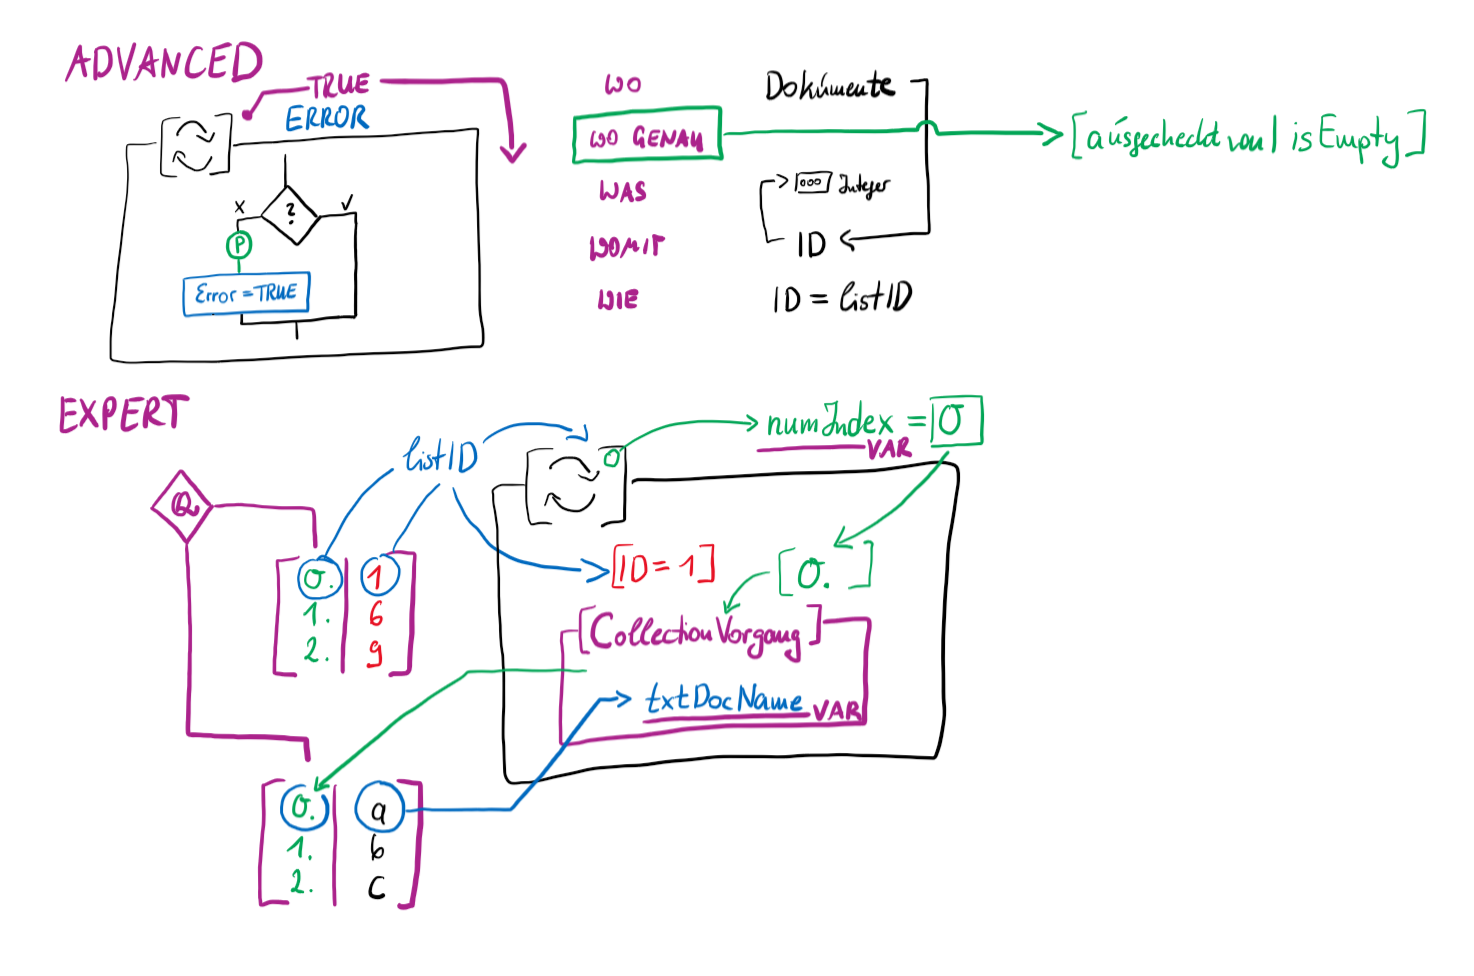 ADVANCED
TRUE
ERROR
x
?
P
Error = TRUE
WO
WO GENAU
WAS
WOMIT
WIE
Dokumente
[ausgecheckt von | isEmpty]
Integer
ID
ID = listID
EXPERT
listID
numIndex = 0
VAR
Q
0. 1
1. 6
2. 9
[ID = 1]
[0. ]
[CollectionVorgang]
txtDocName
VAR
0. a
1. b
2. c